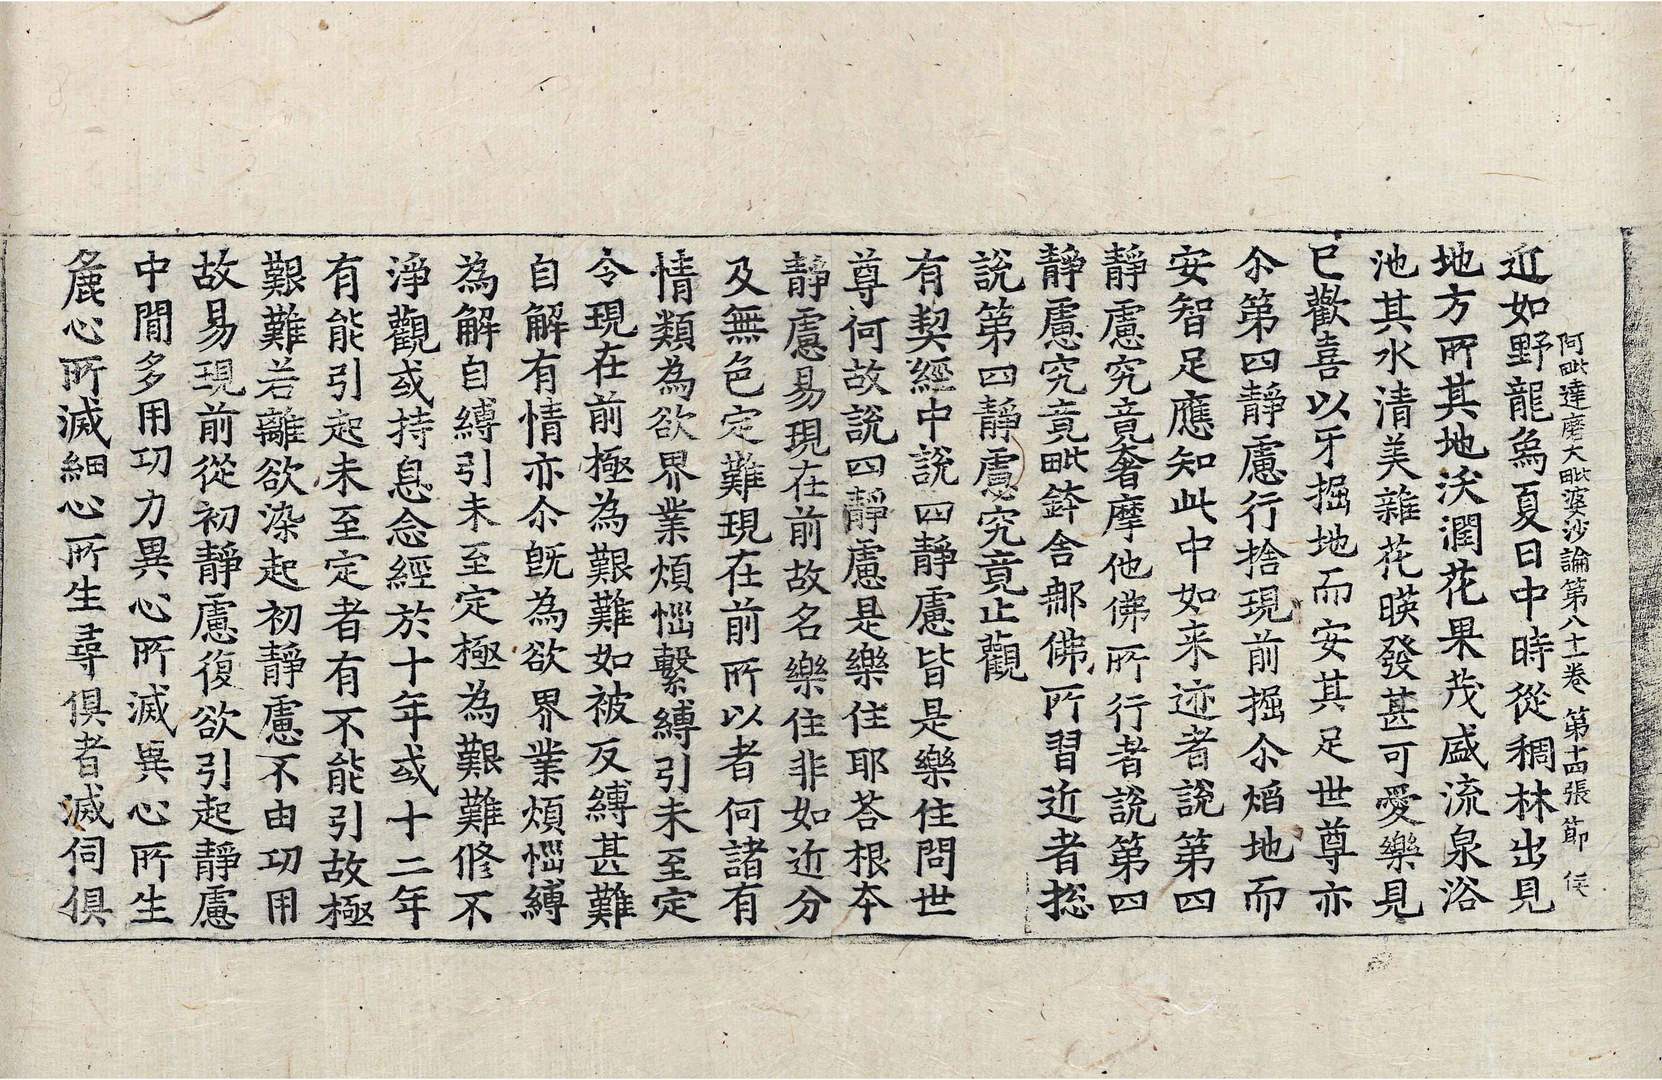 阿毗達磨大毗婆沙論第八十一卷 第十四張 節 侯
近如野龍爲夏日中時從稠林出見
地方所其地沃潤花果茂盛流泉浴
池其水清美雜花暎發甚可愛樂見
已歡喜以牙掘地而安其足世尊亦
尒第四靜慮行捨現前掘尒焰地而
安智足應知此中如来迹者說第四
靜慮究竟奢摩他佛所行者說第四
靜慮究竟毗鉢舍那佛所習近者捴
說第四靜慮究竟止觀
有契經中說四靜慮皆是樂住問世
尊何故說四靜慮是樂住耶荅根本
靜慮易現在前故名樂住非如近分
及無色定難現在前所以者何諸有
情類為欲界業煩惱繫縛引未至定
令現在前極為艱難如被反縛甚難
自解有情亦尒旣為欲界業煩惱縛
為解自縛引未至定極為艱難脩不
淨觀或持息念經於十年或十二年
有能引起未至定者有不能引故極
艱難若離欲染起初靜慮不由功用
故易現前從初靜慮復欲引起靜慮
中閒多用功力異心所滅異心所生
麁心所滅細心所生尋俱者滅伺俱